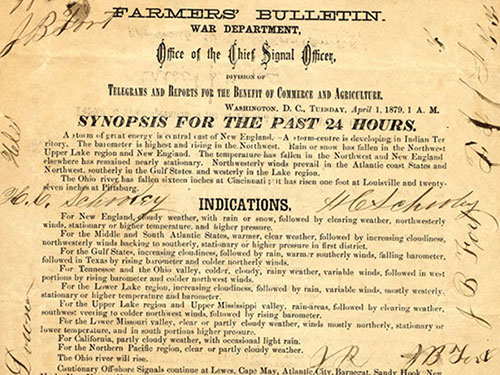 FARMERS' BULLETIN.
WAR DEPARTMENT,
J B Fort
Office of the Chief Signal Officer,
DIVISION OF
TELEGRAMS AND REPORTS FOR THE BENEFIT OF COMMERCE AND AGRICULTURE.
WASHINGTON, D. C., TUESDAY, April 1, 1879, 1 A. M.
SYNOPSIS FOR THE PAST 24 HOURS.
A storm of great energy is central east of New England. A storm-centre is developing in Indian Ter
ritory. The barometer is highest and rising in the Northwest. Rain or snow has fallen in the Northwest
Upper Lake region and New England. The temperature has fallen in the Northwest and New England
elsewhere has remained nearly stationary. Northwesterly winds prevail in the Atlantic coast States and
Northwest, southerly in the Gulf States and westerly in the Lake region.
The Ohio river has fallen sixteen inches at Cincinnati; it has risen one foot at Louisville and twenty-
seven inches at Pittsburg.
INDICATIONS.
For New England, cloudy weather, with rain or snow, followed by clearing weather, northwesterly
winds, stationary or higher temperature, and higher pressure.
For the Middle and South Atlantic States, warmer, clear weather, followed by increasing cloudiness,
northwesterly winds backing to southerly, stationary or higher pressure in first district.
For the Gulf States, increasing cloudiness, followed by rain, warmer southerly winds, falling barometer,
followed in Texas by rising barometer and colder northerly winds.
For Tennessee and the Ohio valley, colder, cloudy, rainy weather, variable winds, followed in west
portions by rising barometer and colder northwest winds.
For the Lower Lake region, increasing cloudiness, followed by rain, variable winds, mostly westerly.
stationary or higher temperature and barometer.
For the Upper Lake region and Upper Mississippi valley, rain-areas, followed by clearing weather,
southwest veering to colder northwest winds, followed by rising barometer.
For the Lower Missouri valley, clear or partly cloudy weather, winds mostly northerly, stationary or
lower temperature, and in south portions higher pressure.
For California, partly cloudy weather, with occasional light rain.
For the Northern Pacific region, clear or partly cloudy weather.
The Ohio river will rise.
Cautionary Off-shore Signals continue at Lewes, Cape May, Atlantic City, Barnegat, Sandy Hook, New